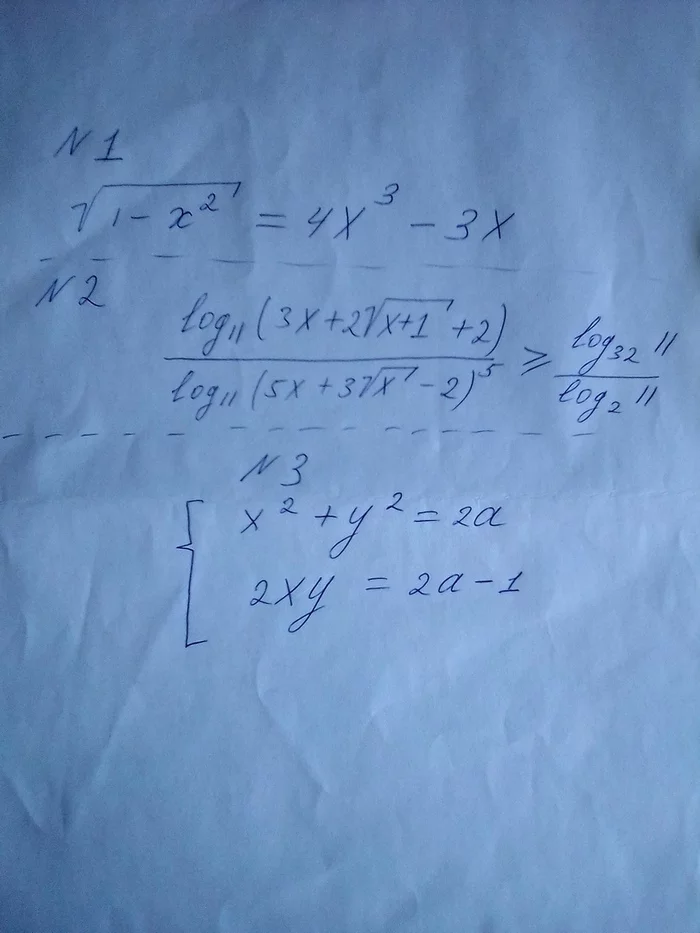 N1
√(1 - x²) = 4x³ - 3x
N2
log₁₁(3x + 2√(x+1) + 2) / log₁₁(5x + 3√x - 2)⁵ ⩾ log₃₂ 11 / log₂ 11
N3
{ x² + y² = 2a
2xy = 2a - 1